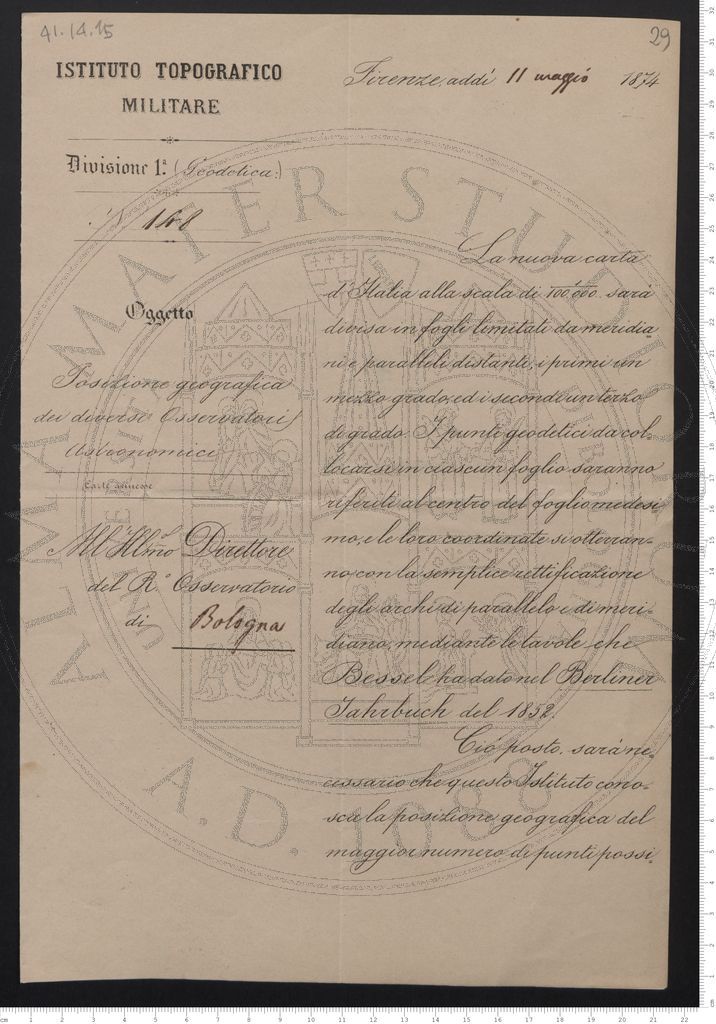 41.14.15
29
ISTITUTO TOPOGRAFICO
MILITARE
Divisione 1.ª (Geodetica.)
168
Oggetto
Posizione geografica
dei diversi Osservatorj
Astronomici
Carte annesse
All'Illmo Direttore
del R.º Osservatorio
di Bologna
Firenze, addì 11 maggio 1874
La nuova carta
d'Italia alla scala di 1/100'000 sarà
divisa in fogli limitati da meridia
ni e paralleli distanti, i primi un
mezzo grado, ed i secondi un terzo
di grado. I punti geodetici da col-
locarsi in ciascun foglio saranno
riferiti al centro del foglio medesi
mo, e le loro coordinate si otterran-
no con la semplice rettificazione
degli archi di parallelo e di meri-
diano, mediante le tavole che
Bessel ha dato nel Berliner
Jahrbuch del 1852.
Ciò posto, sarà ne-
cessario che questo Istituto cono-
sca la posizione geografica del
maggior numero di punti possi-
ALMA MATER STUDIORUM
A.D. 1088